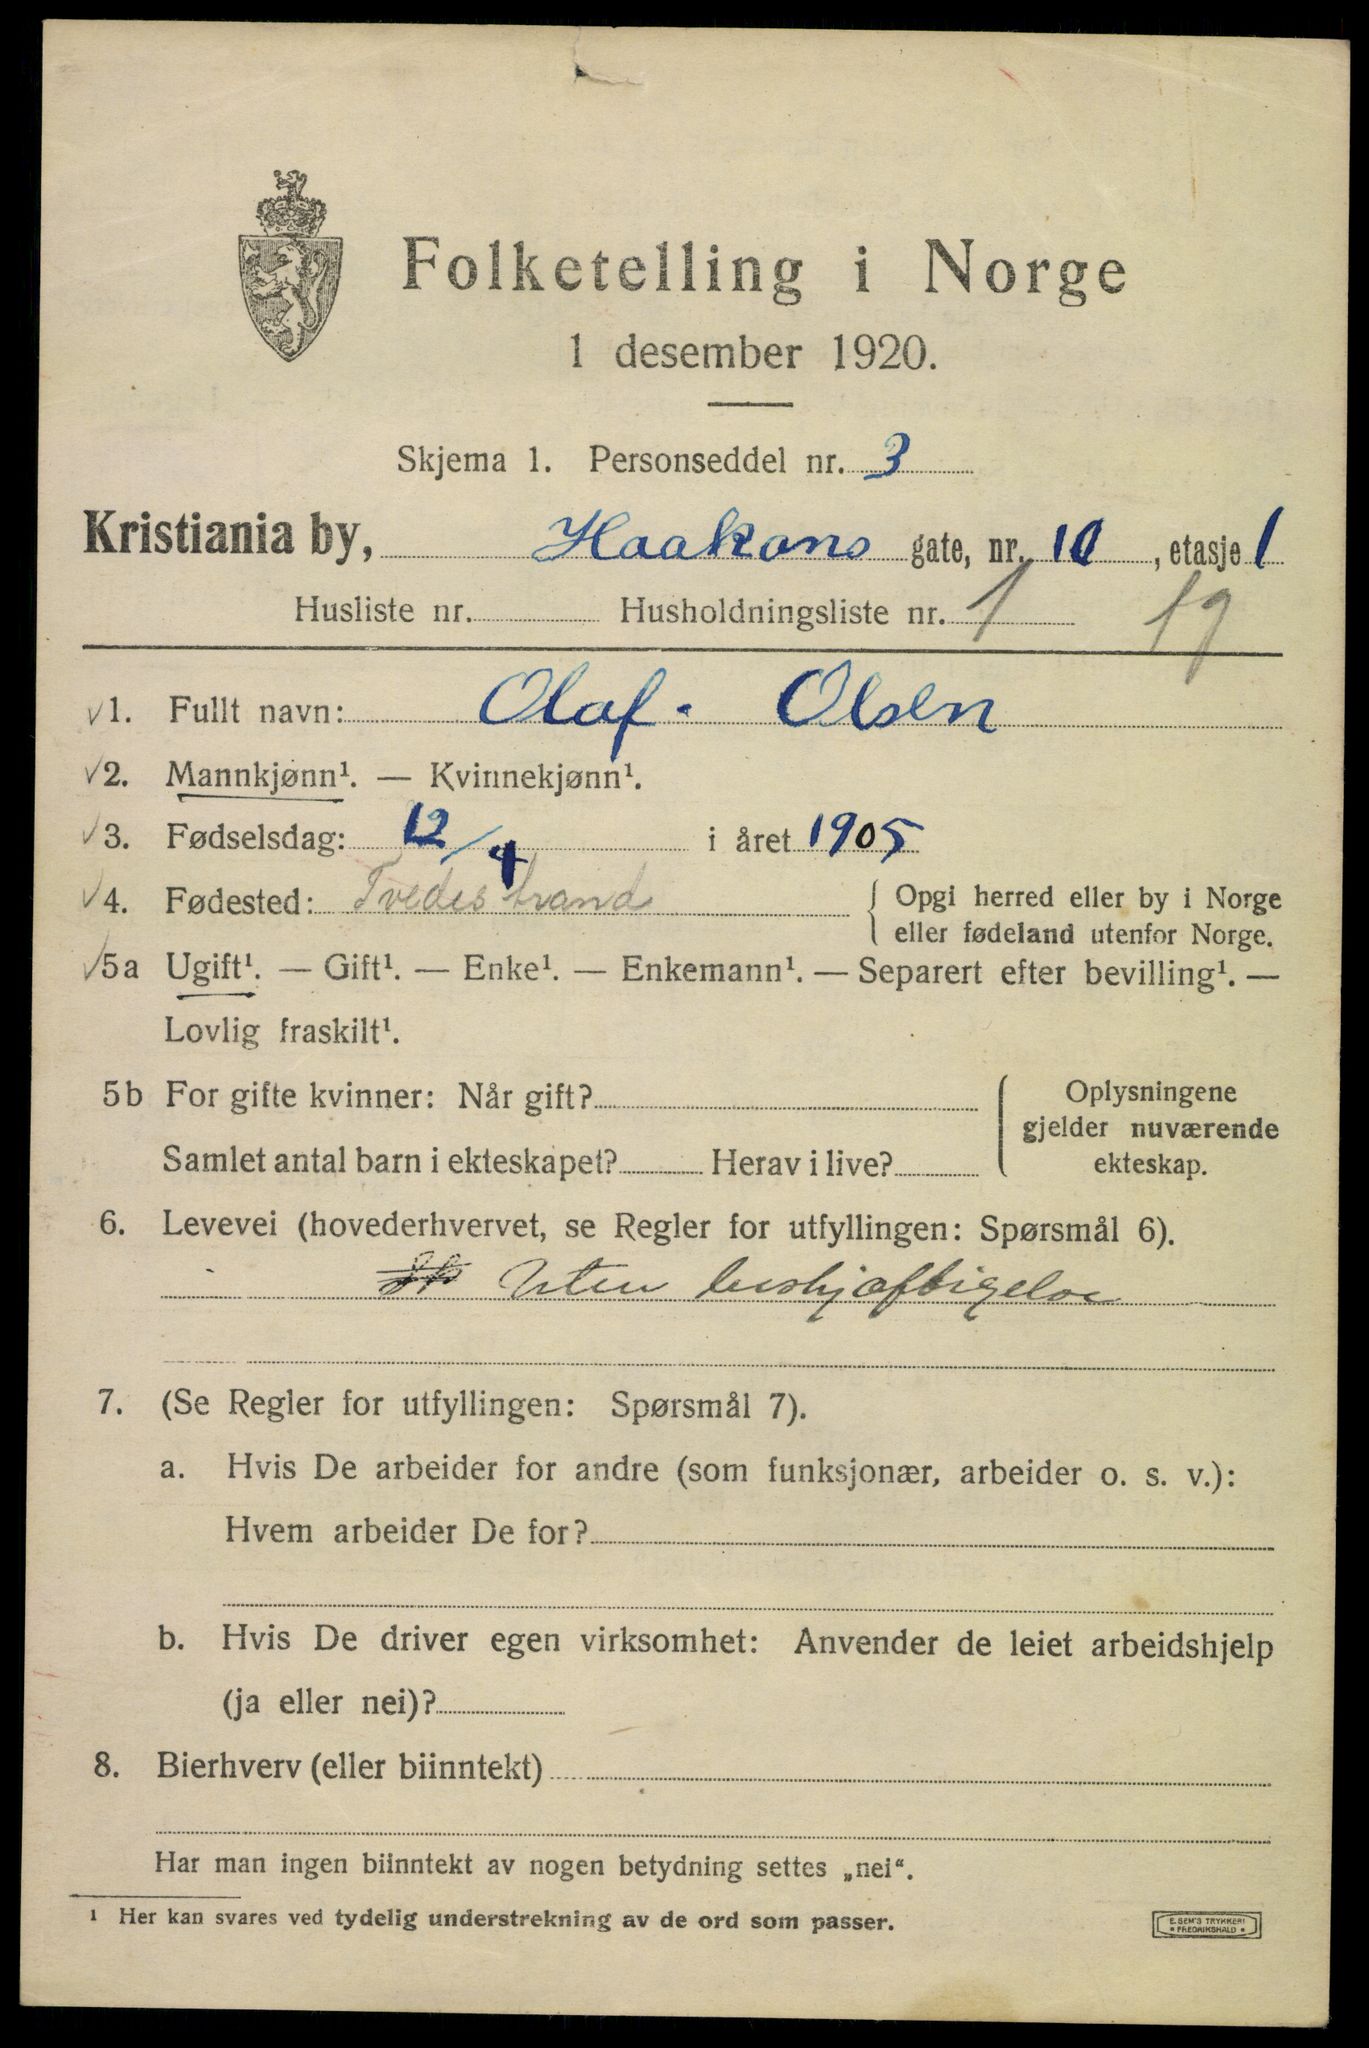 Folketelling i Norge
1 desember 1920.
Skjema 1. Personseddel nr. 3
Kristiania by, Haakons gate, nr. 10, etasje 1
Husliste nr. Husholdningsliste nr. 1 19
√1. Fullt navn: Olaf. Olsen
√2. Mannkjønn¹. — Kvinnekjønn¹.
√3. Fødselsdag: 12/4 i året 1905
√4. Fødested: Tvedestrand { Opgi herred eller by i Norge
eller fødeland utenfor Norge.
√5a Ugift¹. — Gift¹. — Enke¹. — Enkemann¹. — Separert efter bevilling¹. —
Lovlig fraskilt¹.
5b For gifte kvinner: Når gift? { Oplysningene
gjelder nuværende
Samlet antal barn i ekteskapet? Herav i live? ekteskap.
6. Levevei (hovederhvervet, se Regler for utfyllingen: Spørsmål 6).
Uten beskjæftigelse
7. (Se Regler for utfyllingen: Spørsmål 7).
a. Hvis De arbeider for andre (som funksjonær, arbeider o. s. v.):
Hvem arbeider De for?
b. Hvis De driver egen virksomhet: Anvender de leiet arbeidshjelp
(ja eller nei)?
8. Bierhverv (eller biinntekt)
Har man ingen biinntekt av nogen betydning settes „nei“.
¹ Her kan svares ved tydelig understrekning av de ord som passer.
E. SEM'S TRYKKERI
• FREDRIKSHALD •